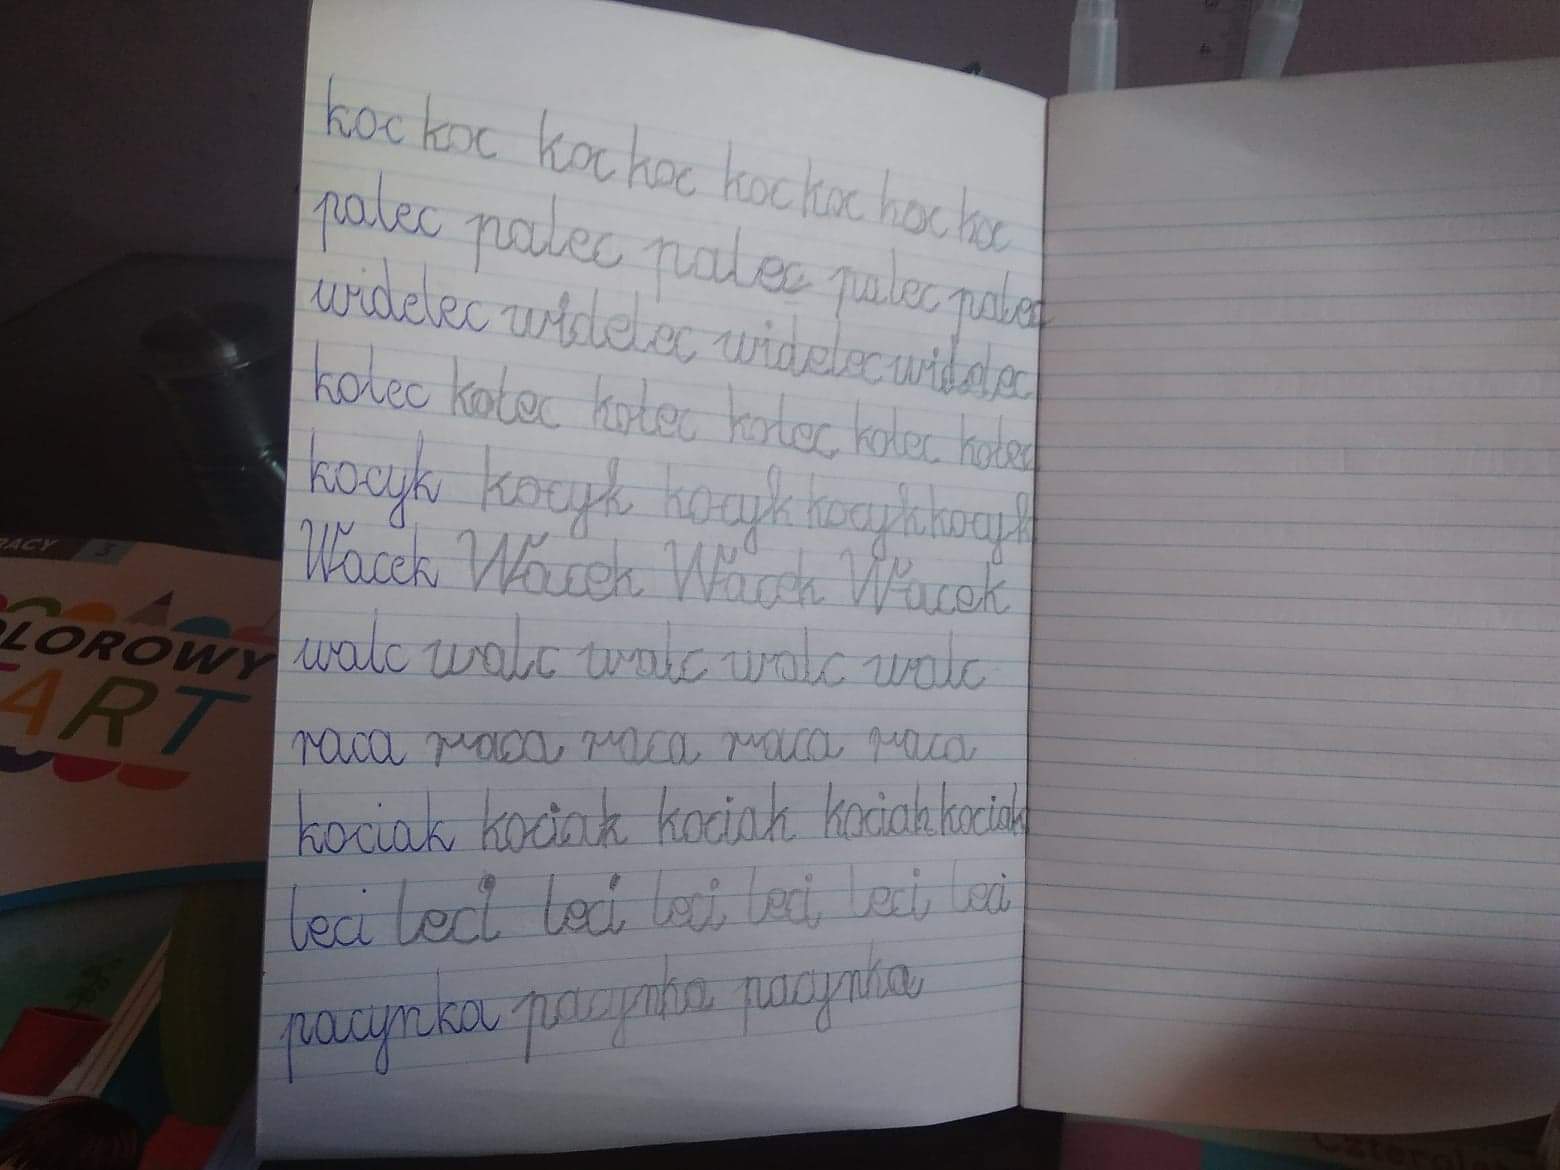 koc koc koc koc koc koc koc koc
palec palec palec palec palec
widelec widelec widelec widelec
kolec kolec kolec kolec kolec kolec
kocyk kocyk kocyk kocyk kocyk
Wacek Wacek Wacek Wacek
walc walc walc walc walc
raca raca raca raca raca
kociak kociak kociak kociak kociak
leci leci leci leci leci leci leci
pacynka pacynka pacynka
RACY 3
OLOROWY
TART